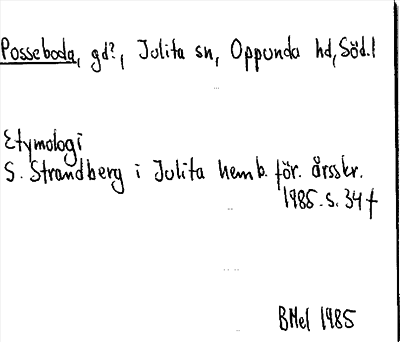 Posseboda, gd?, Julita sn, Oppunda hd, Söd.l
Etymologi
S. Strandberg i Julita hemb. för. årsskr.
1985. s. 34 f
BMel 1985